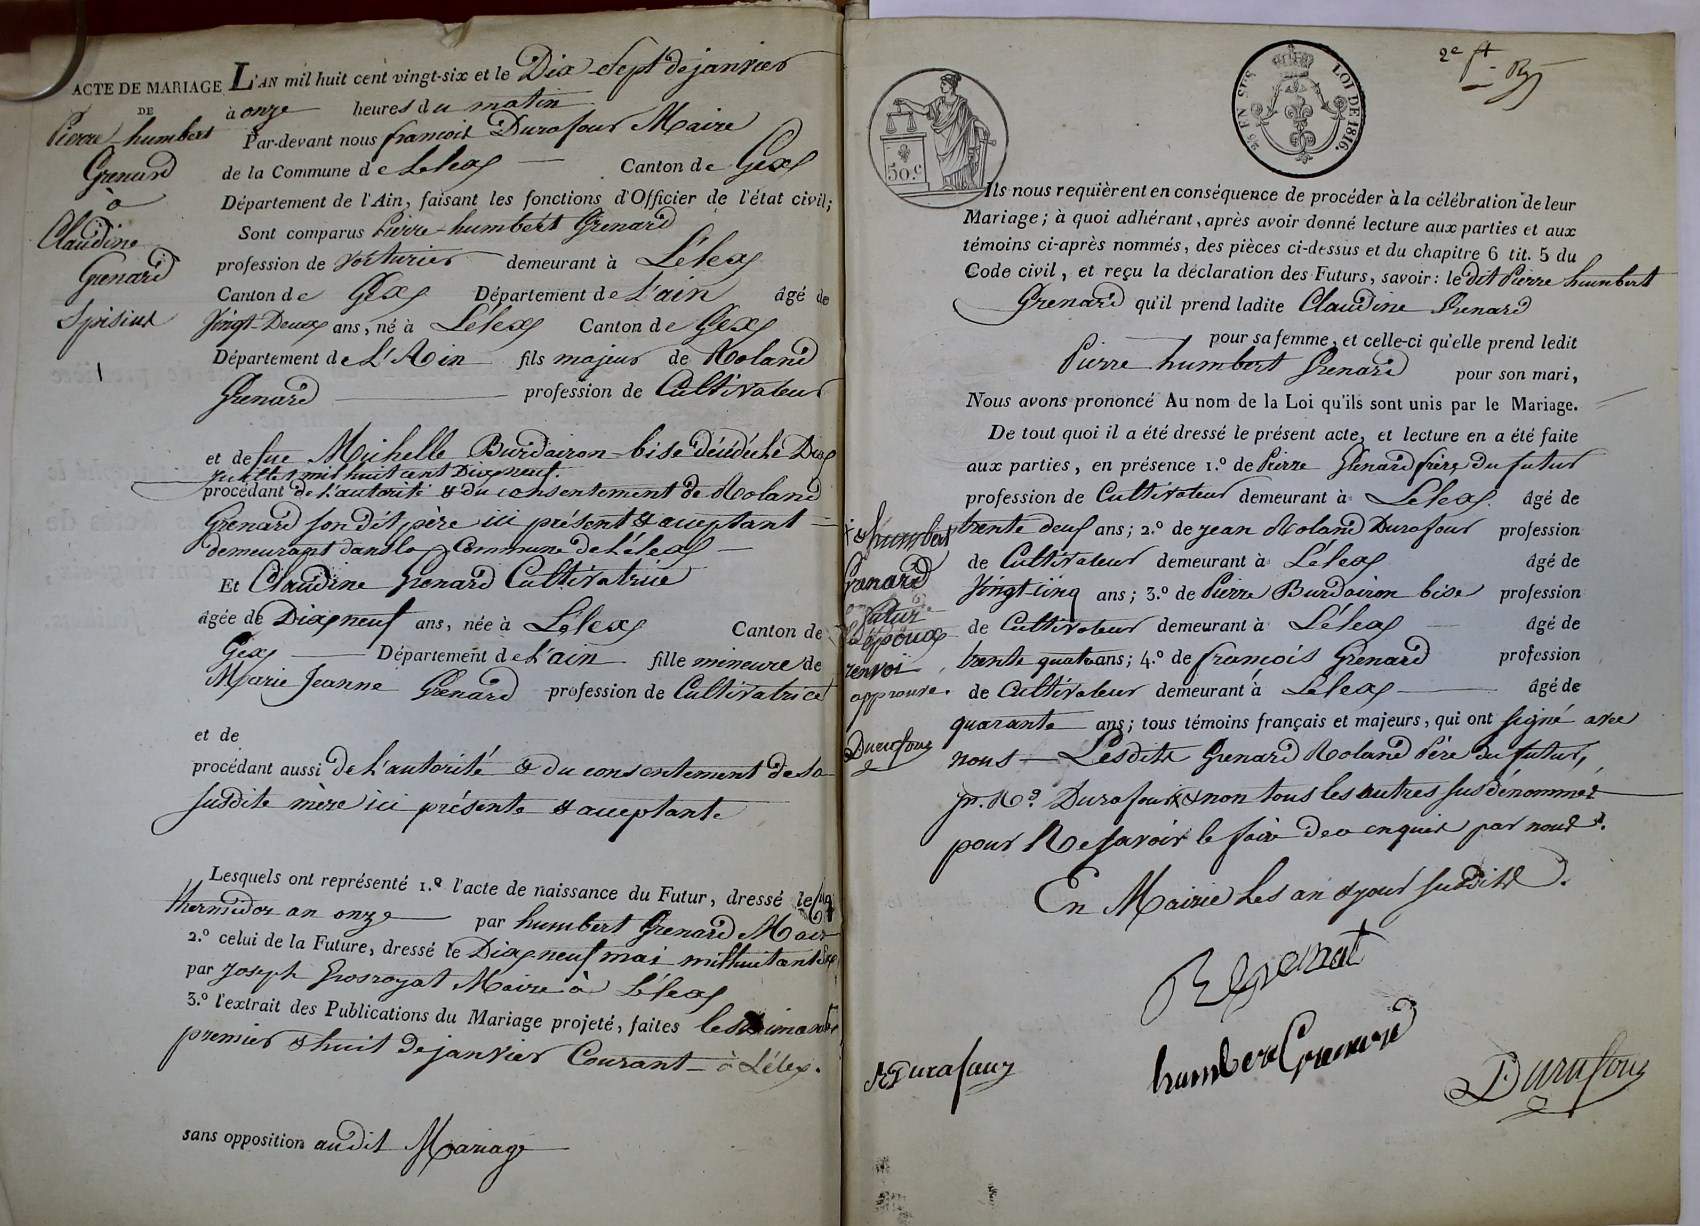 ACTE DE MARIAGE
DE
Pierre-humbert
Grenard
à
Claudine
Grenard
1
L'AN mil huit cent vingt-six et le Dix-Sept de janvier
à onze heures du matin
Par-devant nous françois Durafour Maire
de la Commune de Lelex Canton de Gex
Département de l'Ain, faisant les fonctions d'Officier de l'état civil;
Sont comparus Pierre-humbert Grenard
profession de voiturier demeurant à Lélex
Canton de Gex Département de L'ain âgé de
Vingt-Deux ans, né à Lélex Canton de Gex
Département de L'Ain fils majeur de Roland
Grenard profession de Cultivateur
et de fue Michelle Burdairon-bise décédéé le Dix
juillet mil huit cent Dixneuf.
procédant de L'autorité & du consentement de Roland
Grenard son dit père ici présent & acceptant
demeurant dans la Commune de Lélex
Et Claudine Grenard Cultivatrice
âgée de Dixneuf ans, née à Lélex Canton de
Gex Département de L'ain fille mineure de
Marie Jeanne Grenard profession de Cultivatrice
et de
procédant aussi de L'autorité & du consentement de sa
susdite mère ici présente & acceptante
Lesquels ont représenté 1.º l'acte de naissance du Futur, dressé le
thermidor an onze par humbert Grenard Maire
2.º celui de la Future, dressé le Dixneuf mai mil huit cent Six
par Joseph Grosroyat Maire à Lélex
3.º l'extrait des Publications du Mariage projeté, faites les Dimanches
premier & huit de janvier Courant à Lélex.
sans opposition audit Mariage
2e
50.c
25 EN SUS
LOI DE 1816.
Ils nous requièrent en conséquence de procéder à la célébration de leur
Mariage; à quoi adhérant, après avoir donné lecture aux parties et aux
témoins ci-après nommés, des pièces ci-dessus et du chapitre 6 tit. 5 du
Code civil, et reçu la déclaration des Futurs, savoir: le dit Pierre humbert
Grenard qu'il prend ladite Claudine Grenard
pour sa femme, et celle-ci qu'elle prend ledit
Pierre humbert Grenard pour son mari,
Nous avons prononcé Au nom de la Loi qu'ils sont unis par le Mariage.
De tout quoi il a été dressé le présent acte, et lecture en a été faite
aux parties, en présence 1.º de Pierre Grenard frère du futur
profession de Cultivateur demeurant à Lelex. âgé de
trente deux ans; 2.º de jean Roland Durafour profession
de Cultivateur demeurant à Lélex âgé de
Vingt cinq ans; 3.º de Pierre Burdairon bise profession
de Cultivateur demeurant à Lélex âgé de
trente quatre ans; 4.º de françois Grenard profession
de Cultivateur demeurant à Lelex âgé de
quarante ans; tous témoins français et majeurs, qui ont signé avec
nous Lesdits Grenard Roland Père du futur,
jn. Rd. Durafour & non tous les autres susdénommés
pour Ne savoir le faire de ce enquis par nous.
En Mairie Les an & jour susdits.
& humbert
Grenard
futur
Epoux
renvoi
approuvé.
Durafour
R Grenat
humbert Grenard
R Durafour
Durafour